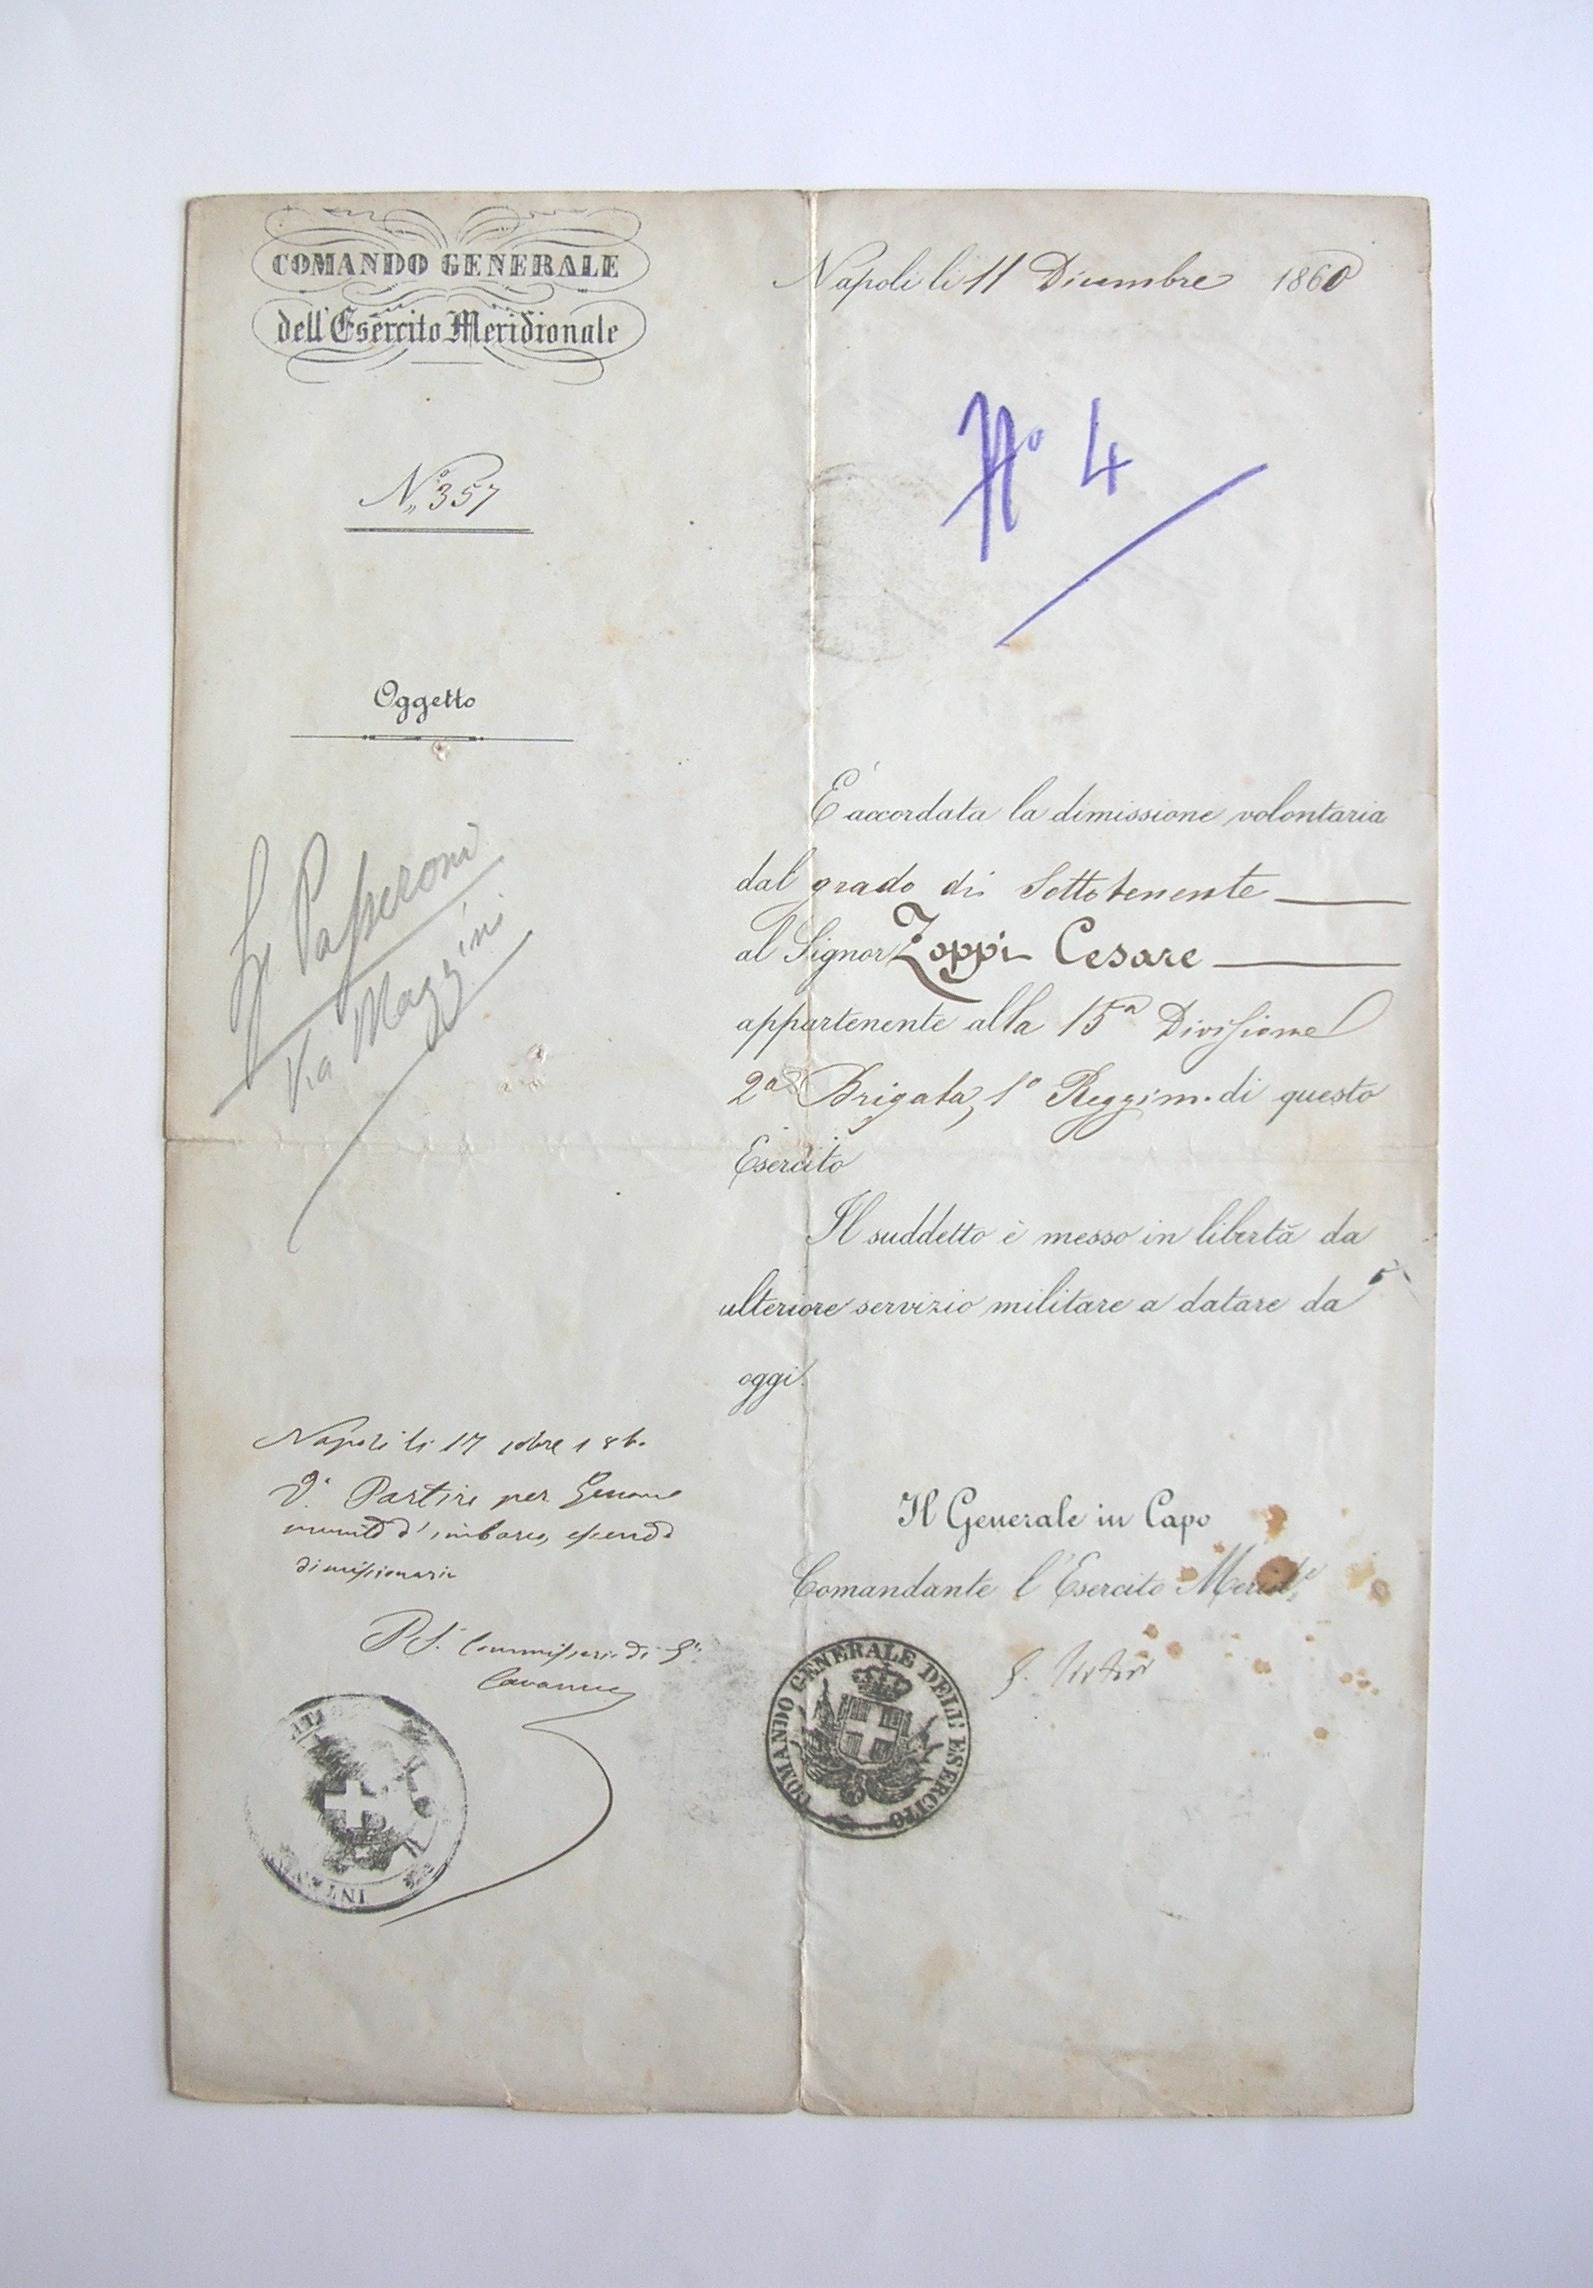 COMANDO GENERALE
dell'Esercito Meridionale
Napoli li 11 Dicembre 1860
N.° 357
N° 4
Oggetto
Passeroni
Via Mazzini
È accordata la dimissione volontaria
dal grado di Sottotenente
al Signor Zoppi Cesare
appartenente alla 15a Divisione
2a Brigata, 1° Reggim. di questo
Esercito
Il suddetto è messo in libertà da
ulteriore servizio militare a datare da
oggi.
Napoli li 17 1860
Partire per Genova
d'imbarco, essendo
dimissionario
Il Generale in Capo
Comandante l'Esercito Merid.le
COMANDO GENERALE DELL' ESERCITO